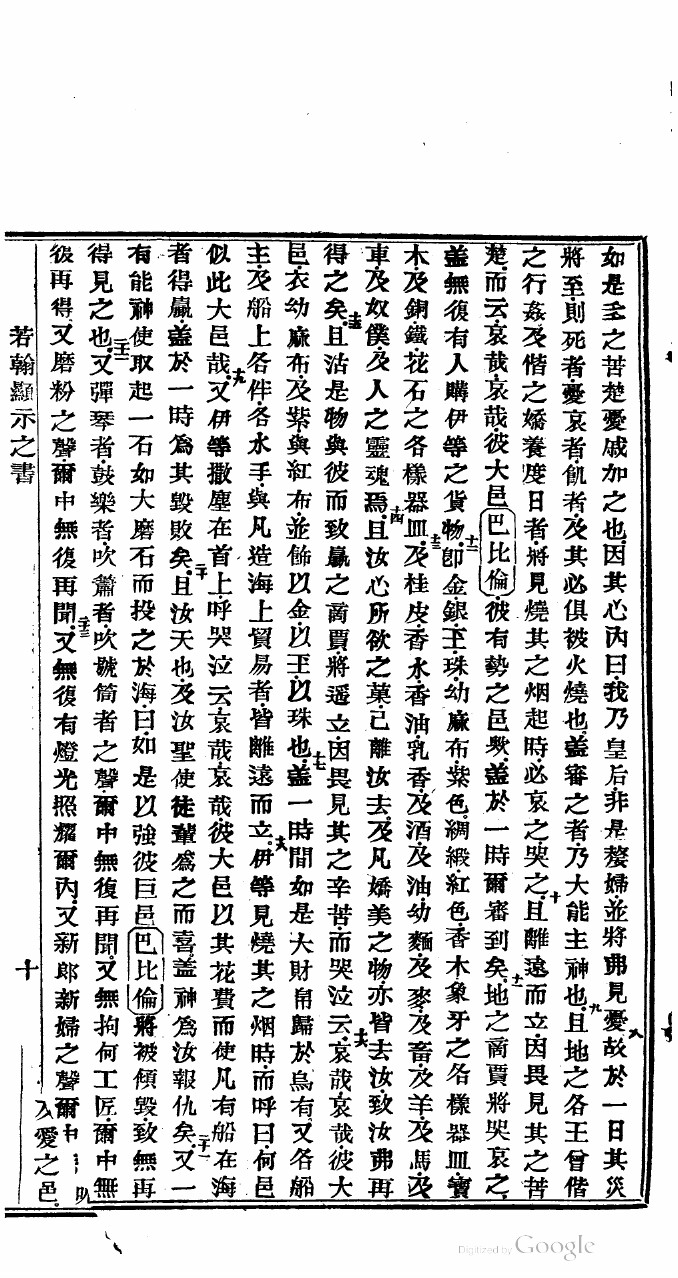 如是主之苦楚憂戚加之也因其心內曰我乃皇后非是嫠婦並將弗見憂故於一日其災
將至則死者憂哀者飢者及其必俱被火燒也蓋審之者乃大能主神也且地之各王曾偕
之行姦及偕之嬌養度日者將見燒其之烟起時必哀之哭之且離遠而立因畏見其之苦
楚而云哀哉哀哉彼大邑巴比倫彼有勢之邑歟蓋於一時爾審到矣地之商賈將哭哀之
蓋無復有人購伊等之貨物卽金銀玉珠幼麻布紫色綢緞紅色香木象牙之各樣器皿寶
木及銅鐵花石之各樣器皿及桂皮香水香油乳香及酒及油幼麵及麥及畜及羊及馬及
車及奴僕及人之靈魂焉且汝心所欲之菓已離汝去及凡嬌美之物亦皆去汝致汝弗再
得之矣且沽是物與彼而致贏之商賈將遥立因畏見其之辛苦而哭泣云哀哉哀哉彼大
邑衣幼麻布及紫與紅布並飾以金以玉以珠也蓋一時間如是大財帛歸於烏有又各船
主及船上各件各水手與凡造海上貿易者皆離遠而立伊等見燒其之烟時而呼曰何邑
似此大邑哉又伊等撒塵在首上呼哭泣云哀哉哀哉彼大邑以其花費而使凡有船在海
者得贏蓋於一時爲其毀敗矣且汝天也及汝聖使徒輩爲之而喜蓋神爲汝報仇矣又一
有能神使取起一石如大磨石而投之於海曰如是以強彼巨邑巴比倫將被傾毀致無再
得見之也又彈琴者鼓樂者吹簫者吹號筒者之聲爾中無復再聞又無拘何工匠爾中無
復再得又磨粉之聲爾中無復再聞又無復有燈光照耀爾內又新郎新婦之聲爾中
若翰顯示之書
十
入愛之邑
八
九
十
十一
十二
十三
十四
十五
十六
十七
十八
十九
二十
二十一
二十二
二十三
Digitized by Google